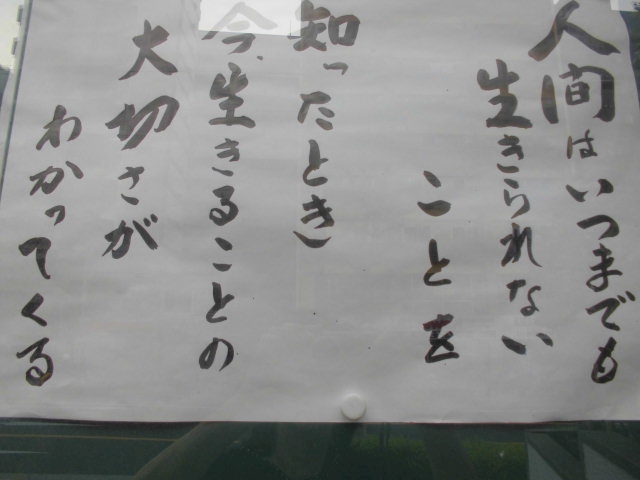 人間はいつまでも
生きられない
ことを
知ったとき
今、生きることの
大切さが
わかってくる